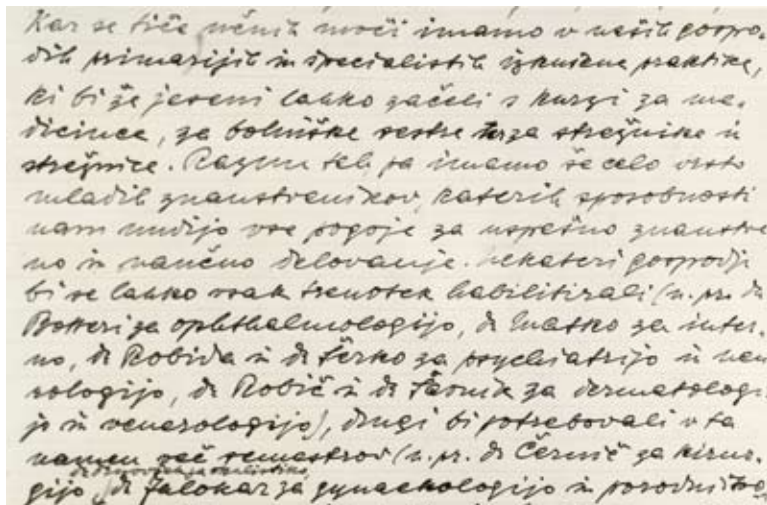 Kar se tiče učnih moči imamo v naših gospo-
dih primarijih in specialistih izkušene praktike,
ki bi že jeseni lahko začeli s kurzi za me-
dicince, za bolniške sestre ter za strežnike in
strežnice. Razun teh pa imamo še celo vrsto
mladih znanstvenikov, katerih sposobnosti
nam nudijo vse pogoje za uspešno znanstve
no in naučno delovanje. Nekateri gospodje
bi se lahko vsak trenotek habilitirali (n. pr. dr
Botteri za ophthalmologijo, dr Matko za inter-
no, dr Robida in dr Šerko za psychiatrijo in neu
rologijo, dr Robič in dr za dermatologi
jo in venerologijo), drugi bi potrebovali v ta
namen več semestrov (n. pr. dr Černič za kirur-
za okulistiko,
gijo, dr Zalokar za gynaekologijo in porodništvo